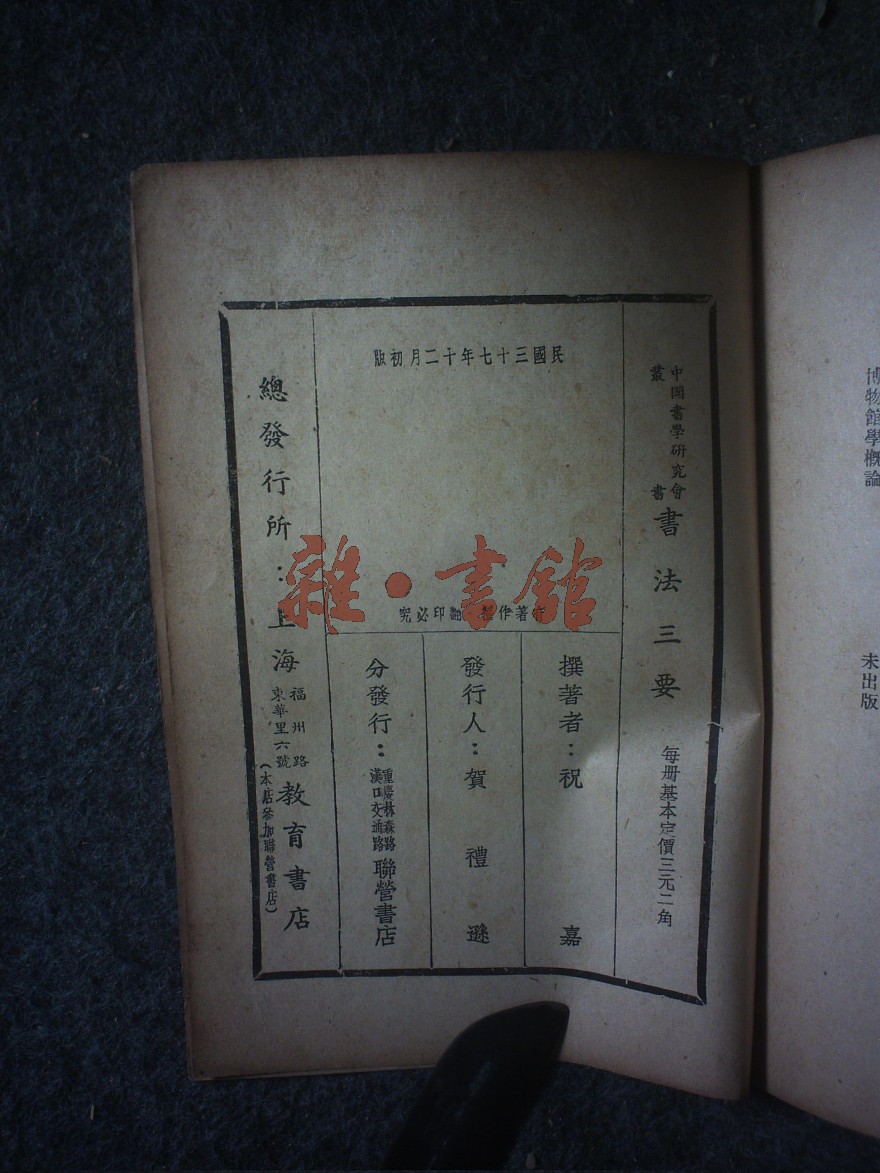 中國書學研究會
叢書
書法三要
每册基本定價三元二角
民國三十七年十二月初版
有著作權 翻印必究
撰著者：祝嘉
發行人：賀禮遜
分發行：
重慶林森路
漢口交通路
聯營書店
總發行所：上海
福州路
東華里六號
教育書店
（本店參加聯營書店）
博物館學概論
未出版
雜·書館